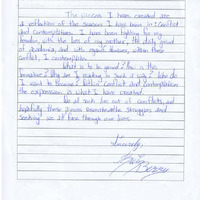 The pieces I have created are
a reflection of the season I have been in: Conflict
and Contemplation. I have been fighting for my
freedom with the loss of my mother, the daily grind
of academia, and with myself. However, within these
conflict, I contemplate.
What is to be gained? How is this
behavior? Why am I reacting in such a way? Who do
I want to become? Within Conflict and Contemplation
the expression is what I have created.
out of conflicts, and
hopefully these pieces demonstrate the struggles and
we all face through our lives.
Sincerely,
Berry